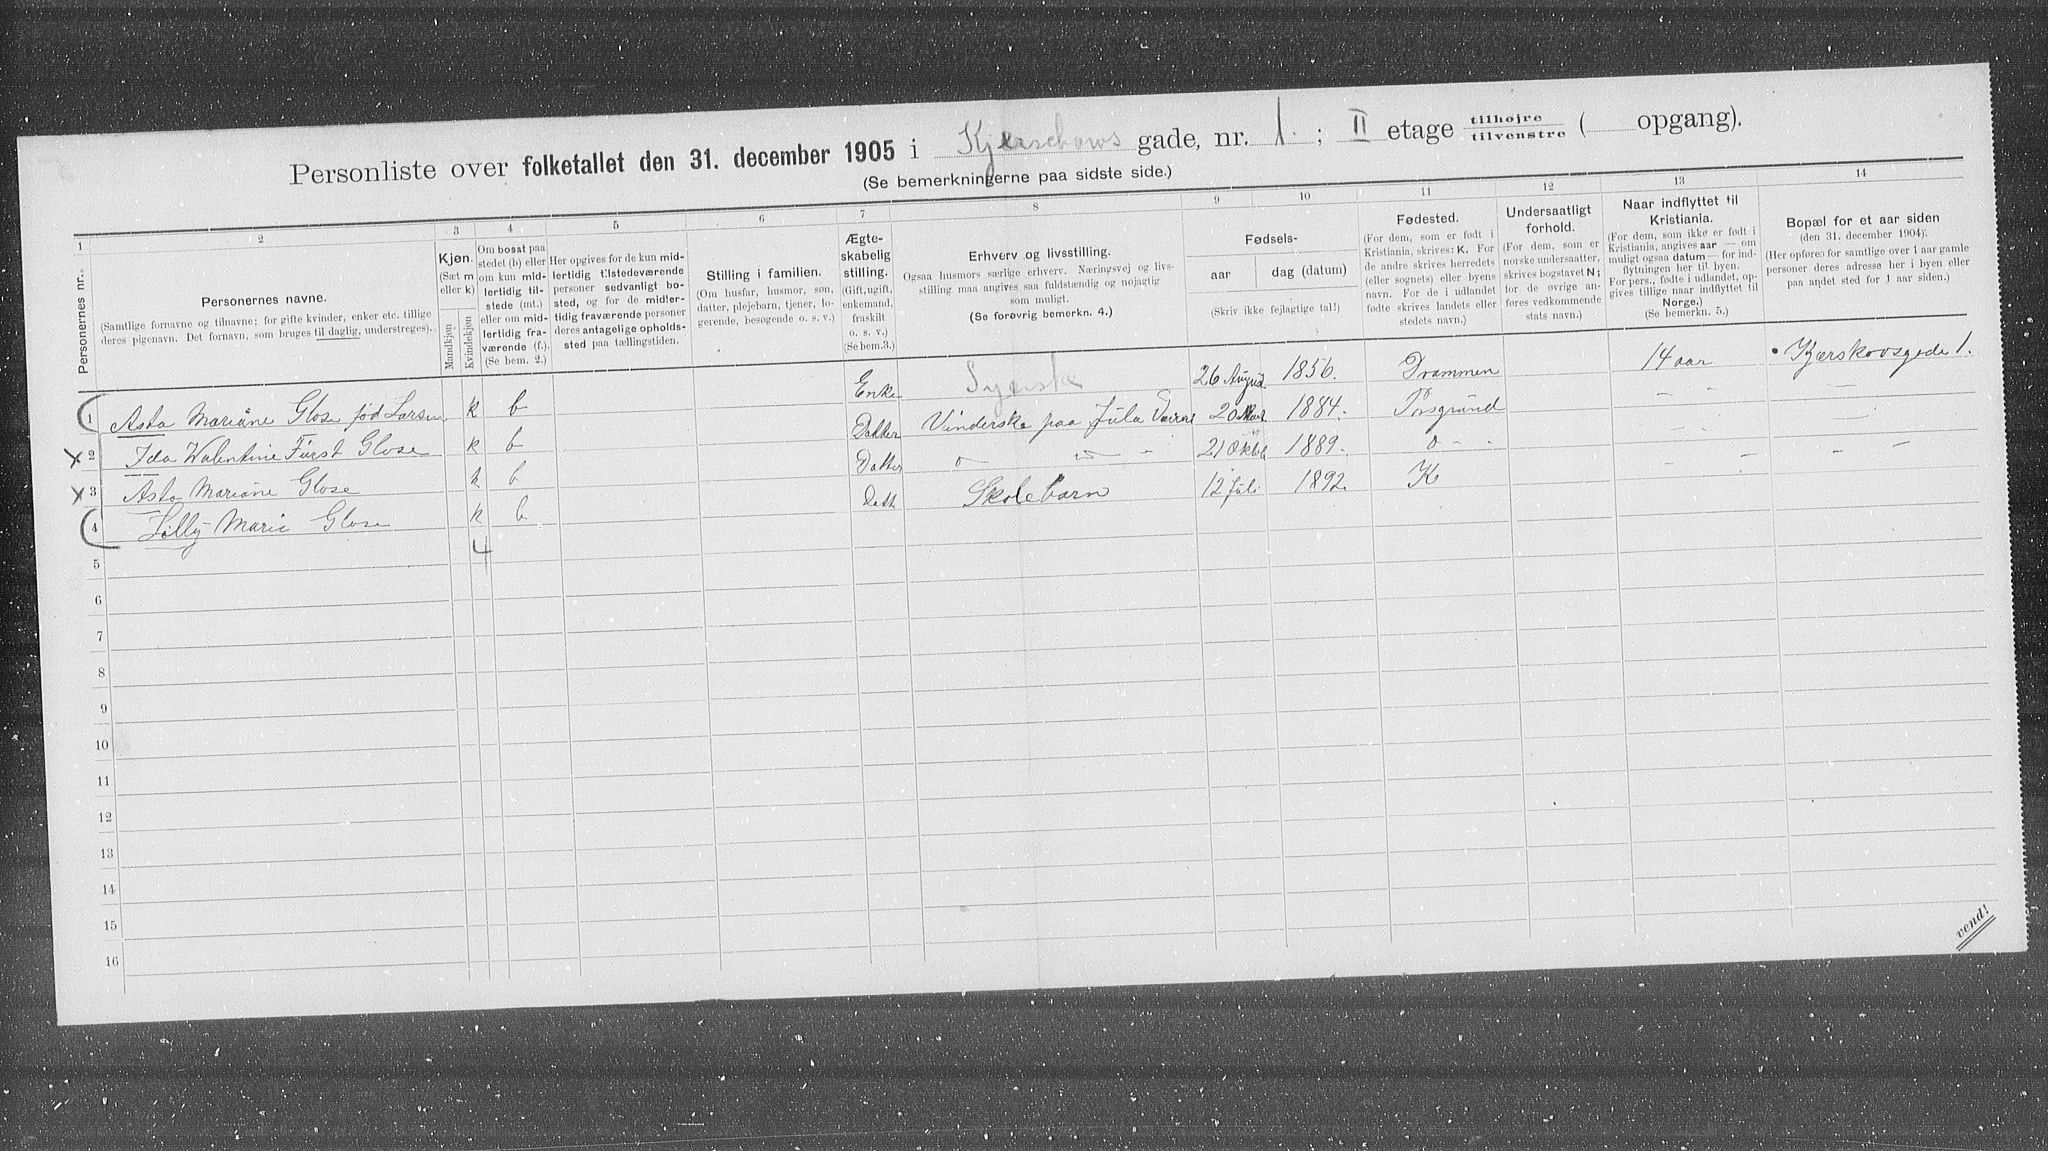 Personliste over folketallet den 31. december 1905 i Kjerschows gade, nr. 1. ; II etage tilhøjre / tilvenstre ( opgang).
(Se bemerkningerne paa sidste side.)
1 2 3 4 5 6 7 8 9 10 11 12 13 14
Personernes nr.
Personernes navne.
(Samtlige fornavne og tilnavne; for gifte kvinder, enker etc. tillige
deres pigenavn. Det fornavn, som bruges til daglig, understreges).
Kjøn.
(Sæt m
eller k)
Mandkjøn
Kvindekjøn
Om bosat paa
stedet (b) eller
om kun mid-
lertidig til-
stede (mt.)
eller om mid-
lertidig fra-
værende (f.).
(Se bem. 2.)
Her opgives for de kun mid-
lertidig tilstedeværende
personer sedvanlig bo-
sted, og for de midler-
tidig fraværende personer
deres antagelige opholds-
sted paa tællingstiden.
Stilling i familien.
(Om husfar, husmor, søn,
datter, plejebarn, tjener, lo-
gerende, besøgende o. s. v.)
Ægte-
skabelig
stilling.
(Gift, ugift,
enkemand,
fraskilt
o. s. v.)
(Se bem. 3.)
Erhverv og livsstilling.
Ogsaa husmors særlige erhverv. Næringsvej og livs-
stilling maa angives saa fuldstændig og nøjagtig
som muligt.
(Se forøvrig bemerkn. 4.)
Fødsels-
aar dag (datum)
(Skriv ikke fejlagtige tal!)
Fødested.
(For dem, som er født i
Kristiania, skrives: K. For
de andre skrives herredets
(eller sognets) eller byens
navn. For de i udlandet
fødte skrives landets eller
stedets navn.)
Undersaatligt
forhold.
(For dem, som er
norske undersaatter,
skrives bogstavet N;
for de øvrige an-
føres vedkommende
stats navn.)
Naar indflyttet til
Kristiania.
(For dem, som ikke er født i
Kristiania, angives aar — om
muligt ogsaa datum — for ind-
flytningen her til byen.
For pers., fødte i udlandet, op-
gives tillige naar indflyttet til
Norge.)
(Se bemerkn. 5.)
Bopæl for et aar siden
(den 31. december 1904).
(Her opføres for samtlige over 1 aar gamle
personer deres adresse her i byen eller
paa andet sted for 1 aar siden.)
1 Asta Mariane Glose fød Larsen k b Enke Syerske 26 August 1856. Drammen 14 aar Kjerskovsgade 1.
2 Ida Walentine Fürst Glose k b Datter Vinderske paa Jula 20 1884. Porsgrund
3 Asta Mariane Glose k b Datter 21 Oktb 1889.
4 Lilly Marie Glose k b Datt Skolebarn 12 Juli 1892. K
4
5
6
7
8
9
10
11
12
13
14
15
16
vend!